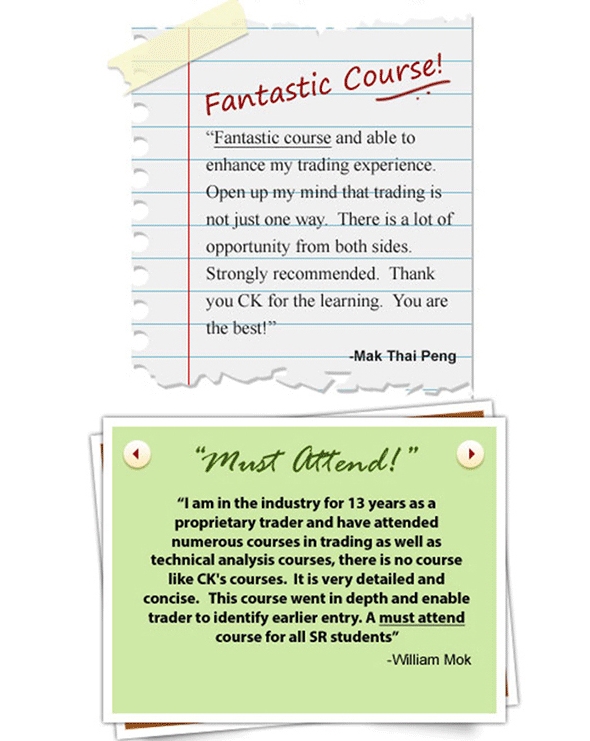 Fantastic Course!
“Fantastic course and able to
enhance my trading experience.
Open up my mind that trading is
not just one way.  There is a lot of
opportunity from both sides.
Strongly recommended.  Thank
you CK for the learning.  You are
the best!”
-Mak Thai Peng
“Must Attend!”
“I am in the industry for 13 years as a
proprietary trader and have attended
numerous courses in trading as well as
technical analysis courses, there is no course
like CK's courses.  It is very detailed and
concise.  This course went in depth and enable
trader to identify earlier entry. A must attend
course for all SR students”
-William Mok